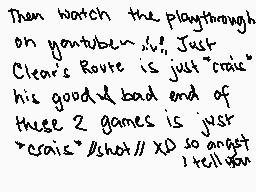 Then watch the playthrough
on youtuben ;v; Just
Clear's Route is just *crais*
his good & bad end of
these 2 games is just
*crais* //shot// XD so angst
I tell you